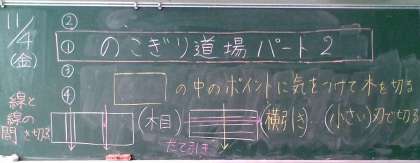 11/4
(金)
②
① のこぎり道場パート2
③
④ の中のポイントに気をつけて木を切る
線と
線の
間を切る
(木目)
たて引き
(横引き)…(小さい)刃で切る